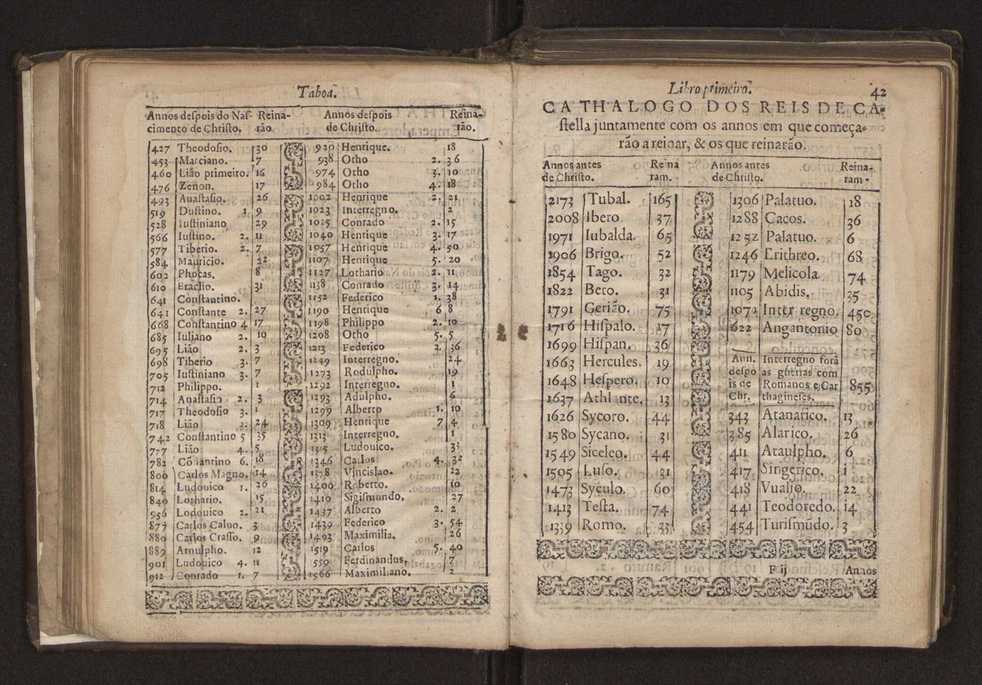 Taboa.
Annos despois do Nas- Reina-
cimento de Christo. rão.
427 Theodosio. 30
453 Marciano. 7
460 Lião primeiro. 16
476 Zenon. 17
493 Anastasio. 26
519 Dustino. 1. 9
528 Iustiniano 29
566 Iustino. 2. 11
577 Tiberio. 2. 7
584 Mauricio. 22
602 Phocas. 8
610 Eraclio. 31
641 Constantino.
641 Constante 2. 27
668 Constantino 4 17
685 Iuliano 2. 10
695 Lião 2. 3
698 Tiberio 3. 7
705 Iustiniano 3. 7
712 Philippo. 1
714 Anastasio 2. 3
717 Theodosio 3. 1
718 Lião 3. 24
742 Constantino 5 35
777 Lião 4. 5
782 Constantino 6. 18
800 Carlos Magno. 14
814 Ludouico 1. 26
840 Lothario. 15
956 Lodouico 2. 21
877 Carlos Caluo. 3
880 Carlos Crasso. 9
889 Arnulpho. 12
901 Ludouico 4. 11
912 Conrado 1. 7
Annos despois Reina-
de Christo. rão.
920 Henrique. 18
938 Otho 2. 36
974 Otho 3. 10
984 Otho 4. 18
1002 Henrique 2. 21
1023 Interregno. 2
1025 Conrado 2. 15
1040 Henrique 3. 17
1057 Henrique 4. 50
1107 Henrique 5. 20
1127 Lothario 2. 11
1138 Conrado 3. 14
1152 Federico 1. 38
1190 Henrique 6 8
1198 Philippo 2. 10
1208 Otho 5. 5
1213 Federico 2. 36
1249 Interregno. 24
1273 Rodulpho. 19
1292 Interregno. 1
1293 Adulpho. 6
1299 Alberto 1. 10
1309 Henrique 7 4
1313 Interregno. 1
1315 Ludouico.
1346 Carlos 4. 32
1378 Vincislao. 22
1400 Roberto. 10
1410 Sigismundo. 27
1437 Alberto 2. 2
1439 Federico 3. 54
1493 Maximilia. 26
1519 Carlos 5. 40
559 Ferdinandus. 7
1566 Maximiliano. 2
Libro primeiro. 42
CATHALOGO DOS REIS DE CA-
stella juntamente com os annos em que começa-
rão a reinar, & os que reinarão.
Annos antes Reina
de Christo. ram.
2173 Tubal. 165
2008 Ibero 37
1971 Iubalda. 65
1906 Brigo. 52
1854 Tago. 32
1822 Beto. 31
1791 Gerião. 75
1716 Hispalo. 17
1699 Hispan. 36
1663 Hercules. 19
1648 Hespero. 10
1637 Athlante. 13
1626 Sycoro. 44
1580 Sycano. 31
1549 Siceleo. 44
1505 Luso. 31
1473 Syculo. 60
1413 Testa. 74
1339 Romo. 33
Annos antes Reina-
de Christo. ram.
1306 Palatuo. 18
1288 Cacos. 36
1252 Palatuo. 6
1246 Erithreo. 68
1179 Melicola. 74
1105 Abidis. 35
1072 Inter regno. 450
622 Angantonio 80
Ann. Interregno forã
despo as guerras com
is de Romanos e Car 855
Chr. thagineses.
343 Atanarico. 13
385 Alarico. 26
411 Ataulpho. 6
417 Singerico. 1
418 Vualio. 22
441 Teodoredo. 14
454 Turismũdo. 3
F ij Annos